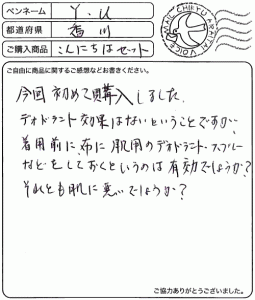 ペンネーム Y.U
都道府県 香川
ご購入商品 こんにちはセット
ご自由に商品に関するご感想などお書きください。
今回初めて購入しました。
デオドラント効果はないということですが、
着用前に、布に肌用のデオドラント・スプレー
などをしておくというのは有効でしょうか?
それとも肌に悪いでしょうか?
ご協力ありがとうございました。